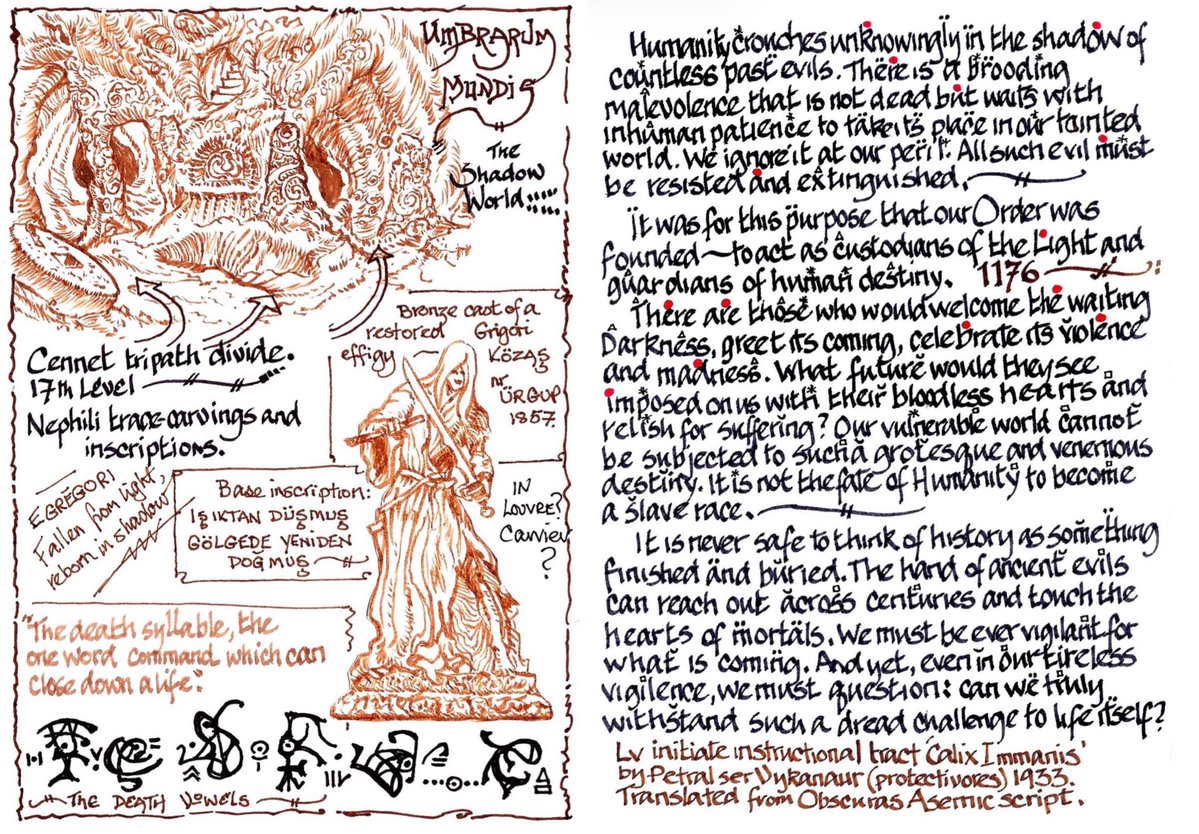 UMBRARUM
MUNDIS
The
Shadow
World
Cennet tripath divide.
17th Level
Nephili trace-carvings and
inscriptions.
Bronze cast of a
restored Grigori
effigy KÖZAŞ
nr
ÜRGUP
1857.
EGREGORI
Fallen from light,
reborn in shadow
Base inscription:
IŞIKTAN DÜŞMUŞ
GÖLGEDE YENIDEN
DOĞMUŞ
IN
LOUVRE?
?
"The death syllable, the
one word command which can
close down a life".
THE DEATH VOWELS
Humanity crouches unknowingly in the shadow of
countless past evils. There is a brooding
malevolence that is not dead but waits with
inhuman patience to take its place in our tainted
world. We ignore it at our peril. All such evil must
be resisted and extinguished.
It was for this purpose that our Order was
founded ~ to act as custodians of the Light and
guardians of human destiny. 1176
There are those who would welcome the waiting
Darkness, greet its coming, celebrate its violence
and madness. What future would they see
imposed on us with their bloodless hearts and
relish for suffering? Our vulnerable world cannot
be subjected to such a grotesque and venemous
destiny. It is not the fate of Humanity to become
a slave race.
It is never safe to think of history as something
finished and buried. The hand of ancient evils
can reach out across centuries and touch the
hearts of mortals. We must be ever vigilant for
what is coming. And yet, even in our tireless
vigilence, we must question: can we truly
withstand such a dread challenge to life itself?
Lv initiate instructional tract 'Calix Immanis'
by Petral ser Vykanaur (protectivores) 1933.
Translated from Obscuras Asemic script.